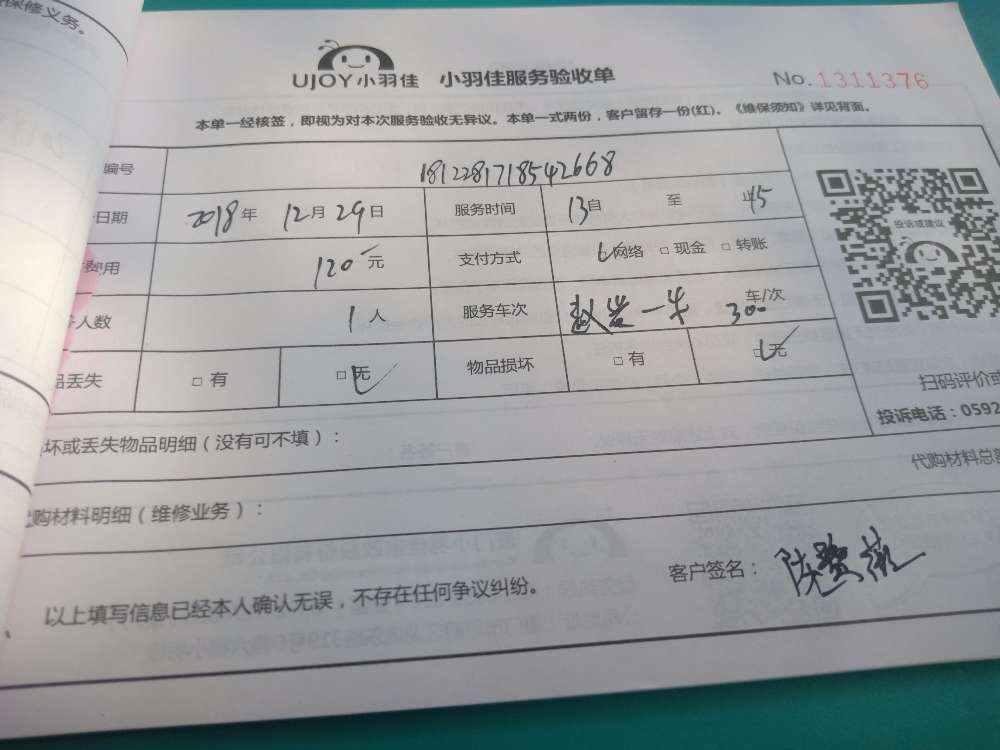 保修义务。
UJOY小羽佳 小羽佳服务验收单 No.1311376
本单一经核签，即视为对本次服务验收无异议。本单一式两份，客户留存一份(红)。《维保须知》详见背面。
编号 1812281718542668
日期 2018年 12月 29日 服务时间 13自 至 止45
费用 120元 支付方式 □网络 □现金 □转账
人数 1人 服务车次 车/次
品丢失 □有 □无 物品损坏 □有 □无
投诉或建议
扫码评价或
投诉电话：0592
坏或丢失物品明细（没有可不填）：
代购材料总额
代购材料明细（维修业务）：
以上填写信息已经本人确认无误，不存在任何争议纠纷。 客户签名：